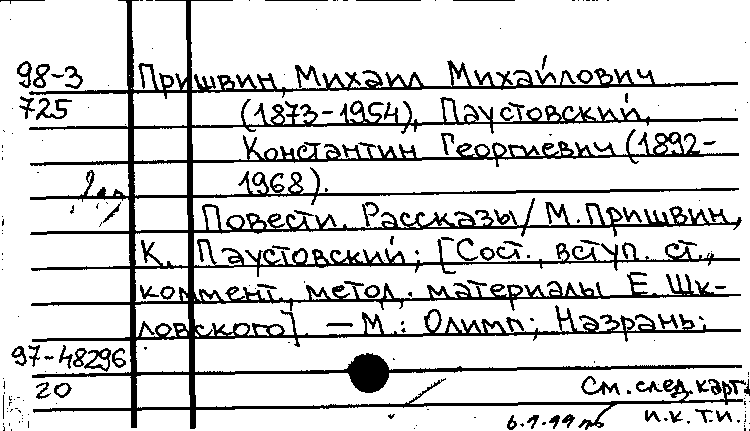 98-3 Пришвин, Михаил Михайлович
725 (1873-1954), Паустовский,
Константин Георгиевич (1892-
1968).
Повести. Рассказы / М. Пришвин,
К. Паустовский; [Сост., вступ. ст.,
коммент., метод. материалы Е. Шк-
ловского]. – М.: Олимп; Назрань:
97-48296
20 См. след. карт.
и.к. т.и.